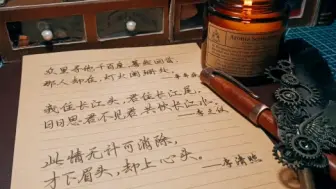 众里寻他千百度,蓦然回首,
那人却在,灯火阑珊处。——辛弃疾
我住长江头,君住长江尾,
日日思君不见君,共饮长江水。
——李之仪
此情无计可消除,
才下眉头,却上心头。——李清照
Aroma